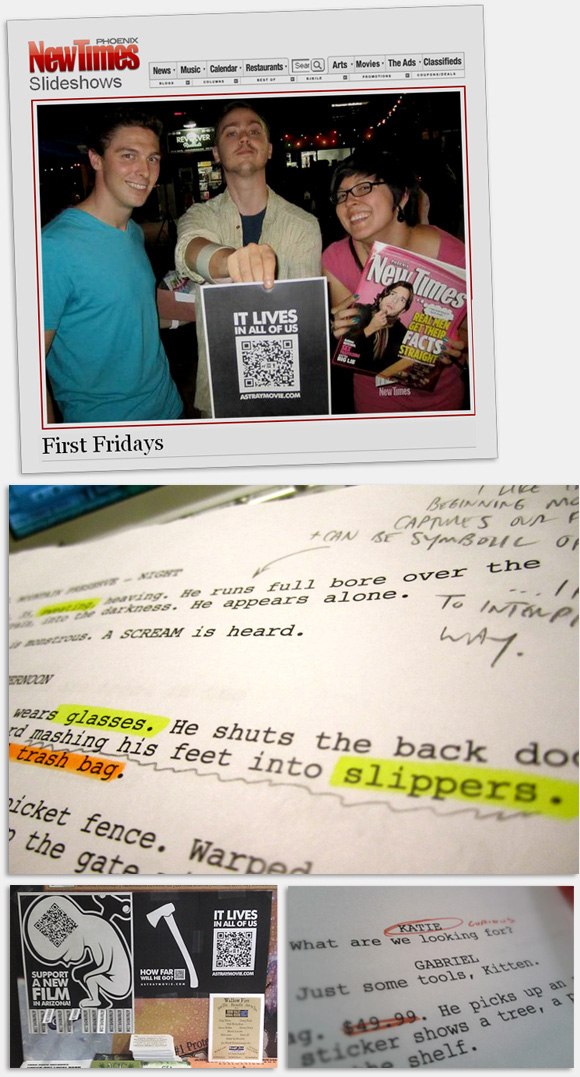 PHOENIX
NewTimes
Slideshows
News Music Calendar Restaurants Arts Movies The Ads Classifieds
BLOGS COLUMNS BEST OF PROMOTIONS COUPONS/DEALS
REVOLVER
IT LIVES
IN ALL OF US
ASTRAYMOVIE.COM
New Times
REAL MEN
GET THEIR
FACTS
STRAIGHT
BIG LIE
New Times
First Fridays
I LIKE
BEGINNING
CAPTURES OUR
+ CAN BE SYMBOLIC
MOUNTAIN PRESERVE - NIGHT
sweating, heaving. He runs full bore over the
into the darkness. He appears alone.
TO
WAY.
is monstrous. A SCREAM is heard.
wears glasses. He shuts the back
mashing his feet into slippers.
trash bag.
picket fence. Warped
the gate
SUPPORT
A NEW
FILM
IN ARIZONA!
HOW FAR
WILL HE GO?
ASTRAYMOVIE.COM
IT LIVES
IN ALL OF US
ASTRAYMOVIE.COM
KATIE CURIOUS
What are we looking for?
GABRIEL
Just some tools, Kitten.
$49.99. He picks up an
sticker shows a tree, a
the shelf.